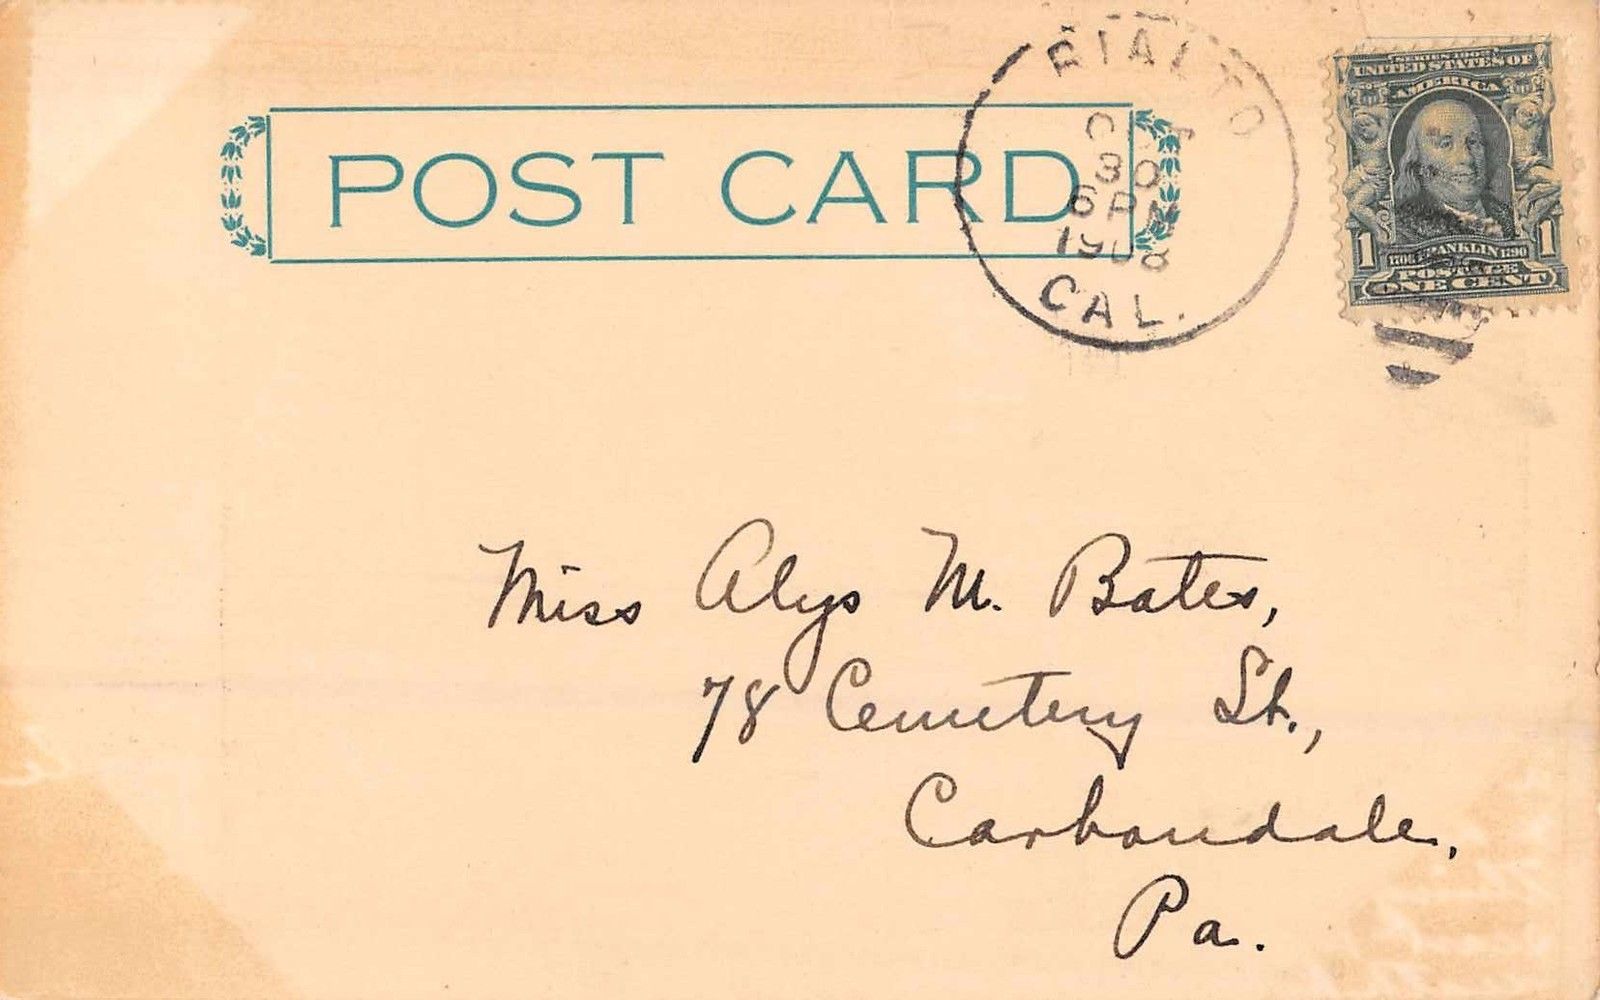 POST CARD
RIALTO
30
6 PM
1908
CAL.
SERIES 1902
UNITED STATES OF
AMERICA
1 1706 FRANKLIN 1790 1
POSTAGE
ONE CENT
Miss Alys M. Bates,
78 Cemetery St.,
Carbondale,
Pa.